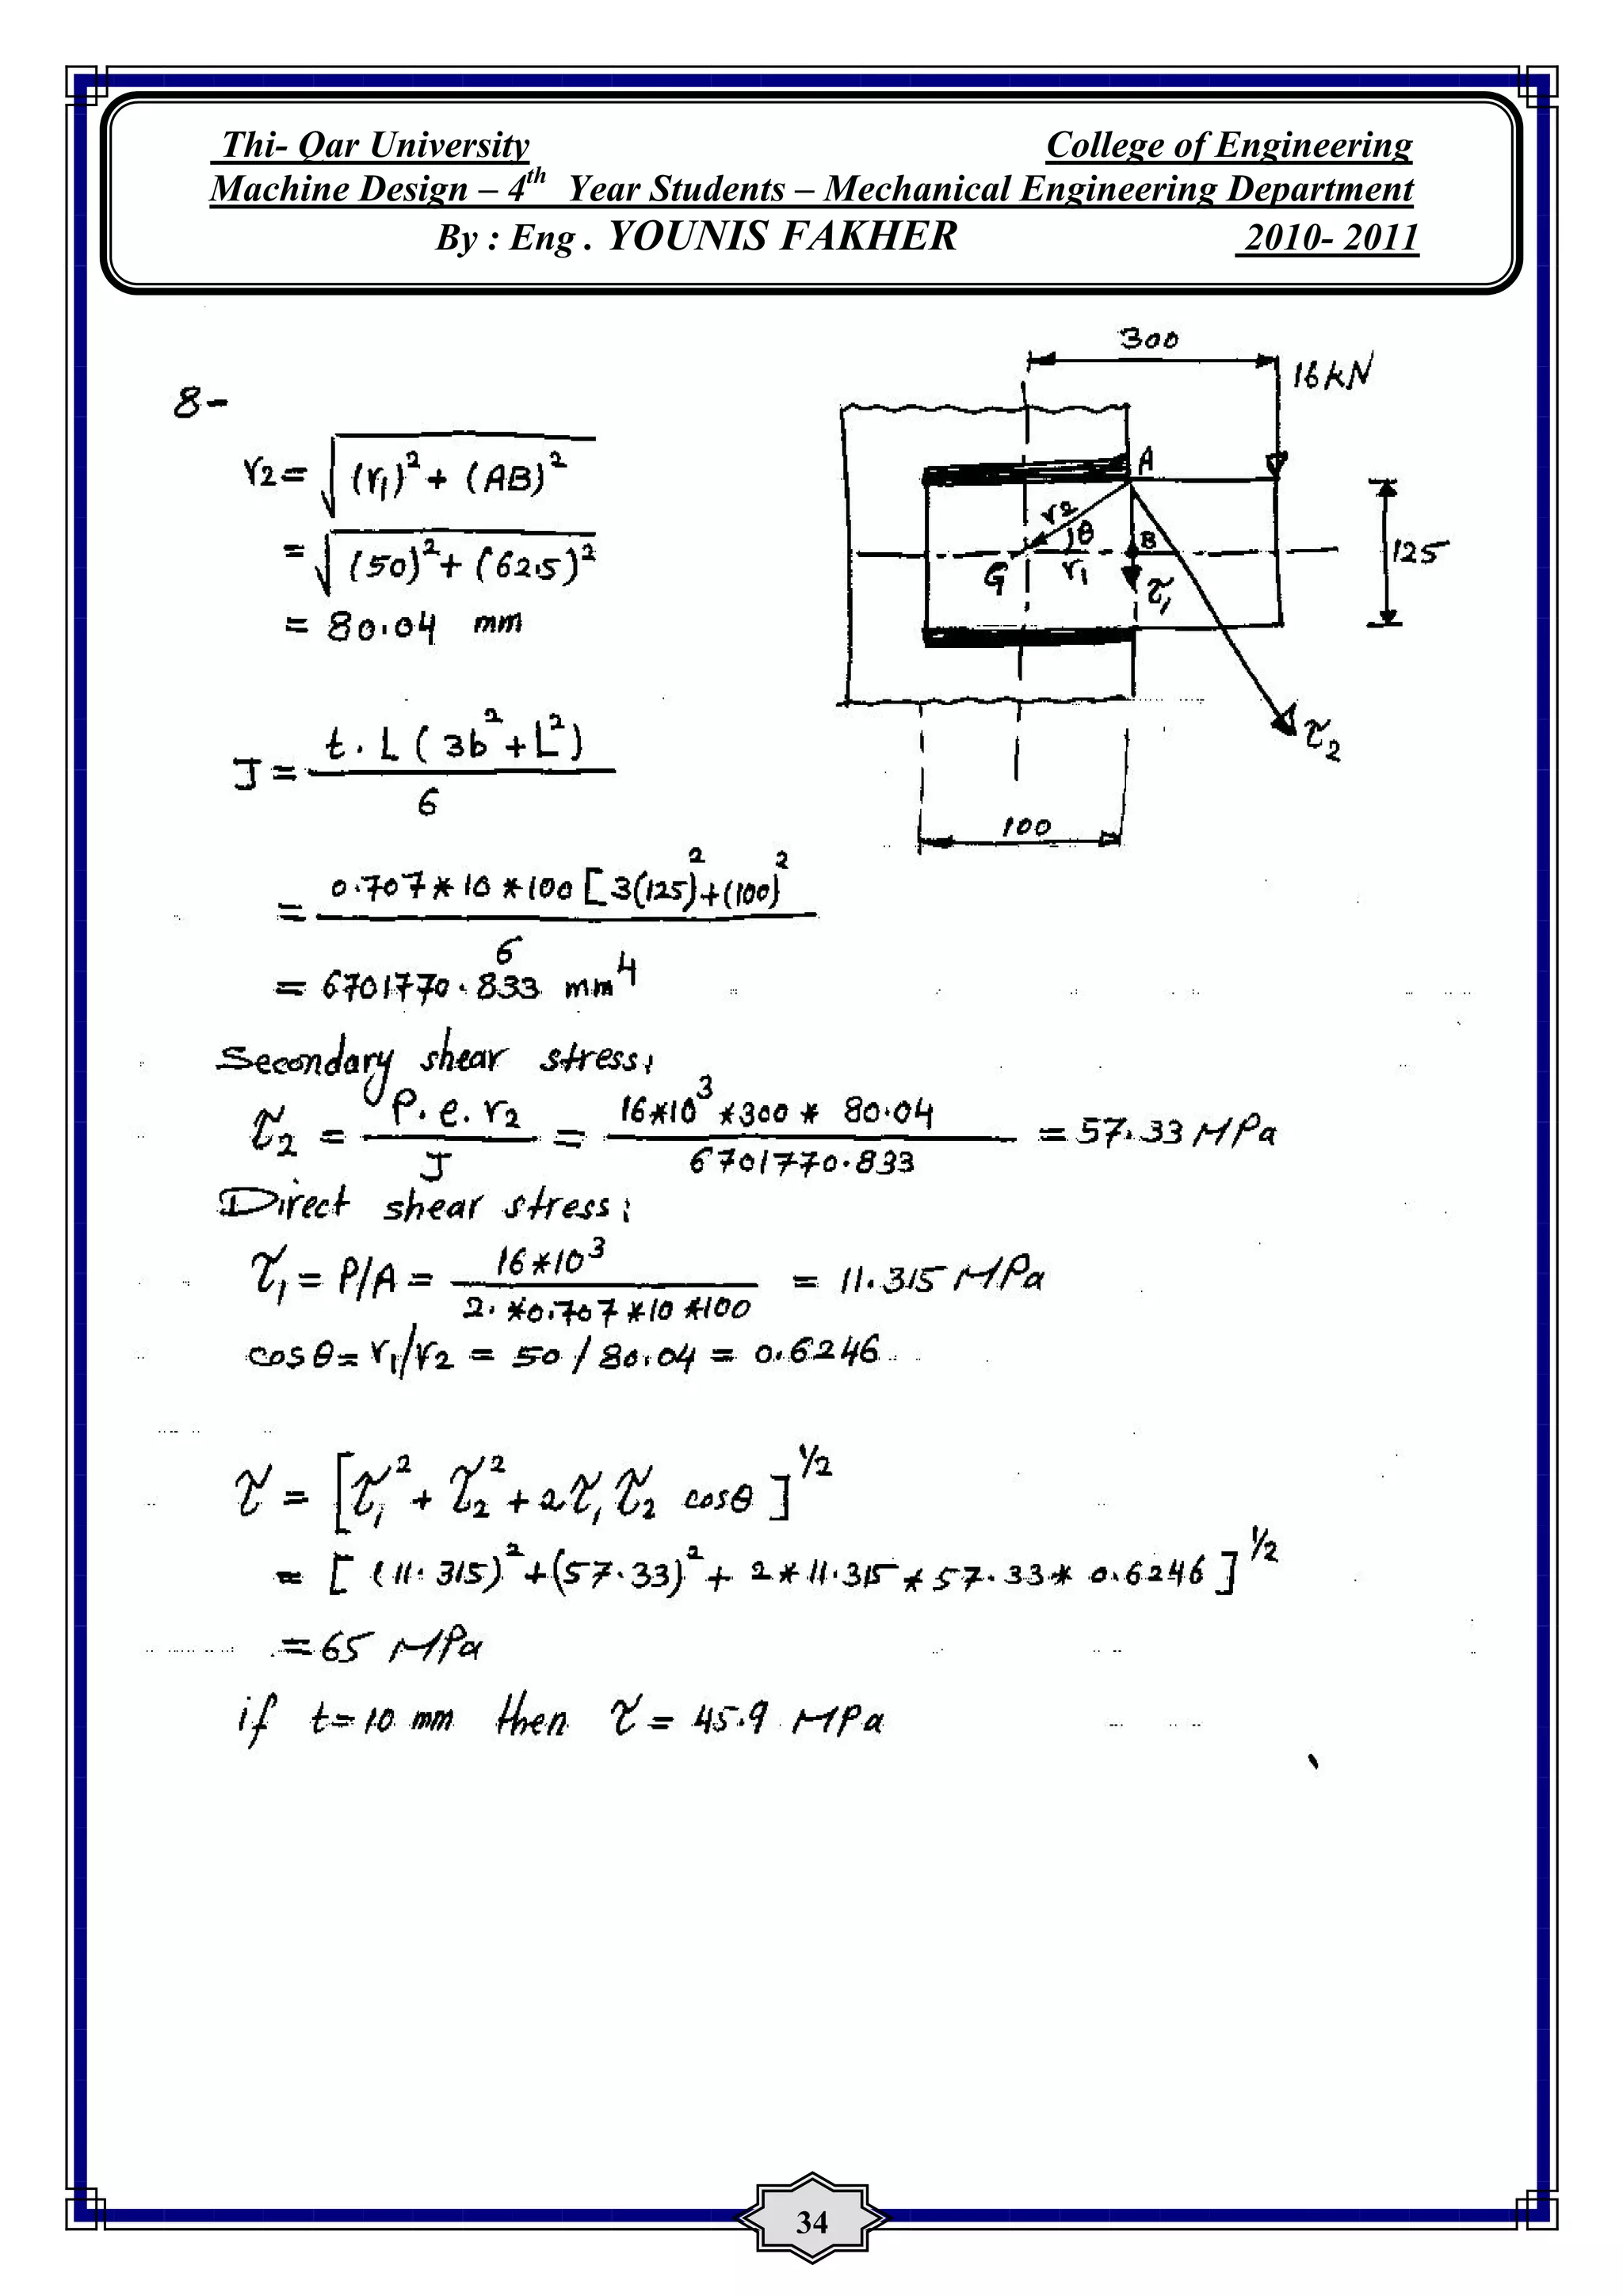 Thi- Qar University College of Engineering
Machine Design – 4th Year Students – Mechanical Engineering Department
By : Eng . YOUNIS FAKHER 2010- 2011
300
16 kN
8-
A
r2 = √((r1)² + (AB)²)
r2
θ
B
= √((50)² + (62.5)²)
125
G
r1
τ1
= 80.04 mm
τ2
J = t . L ( 3b² + L² ) / 6
100
= 0.707 * 10 * 100 [ 3(125)² + (100)² / 6
= 6701770.833 mm⁴
Secondary shear stress:
τ2 = P. e. r2 / J = 16*10³ * 300 * 80.04 / 6701770.833 = 57.33 MPa
Direct shear stress:
τ1 = P/A = 16*10³ / 2. *0.707 *10 *100 = 11.315 MPa
cos θ = r1/r2 = 50 / 80.04 = 0.6246
τ = [ τ1² + τ2² + 2 τ1 τ2 cosθ ]^1/2
= [ (11.315)² + (57.33)² + 2 * 11.315 * 57.33 * 0.6246 ]^1/2
= 65 MPa
if t = 10 mm then τ = 45.9 MPa
34